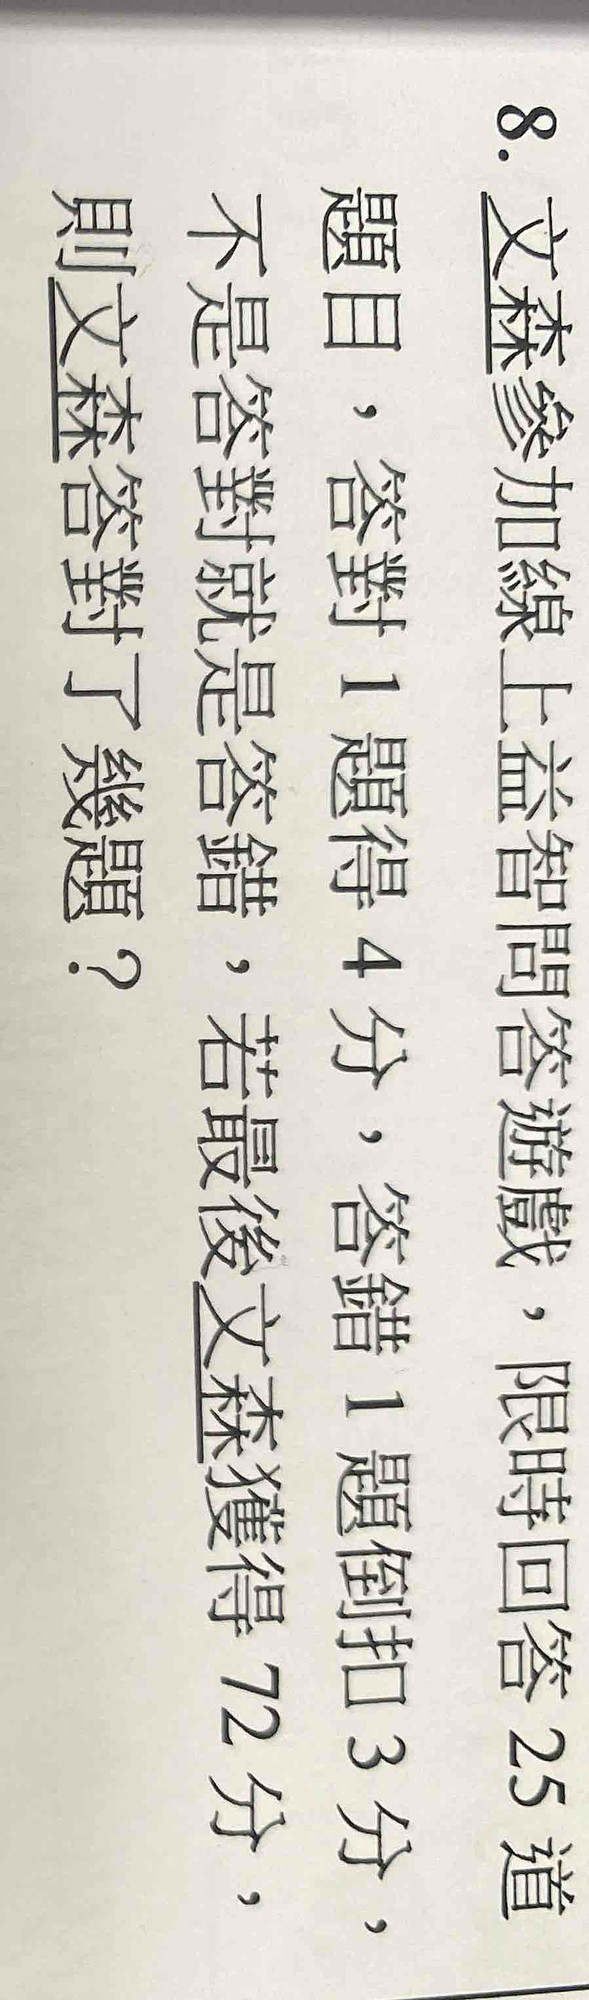 8. 文森參加線上益智問答遊戲，限時回答 25 道
題目，答對 1 題得 4 分，答錯 1 題倒扣 3 分，
不是答對就是答錯，若最後文森獲得 72 分，
則文森答對了幾題？